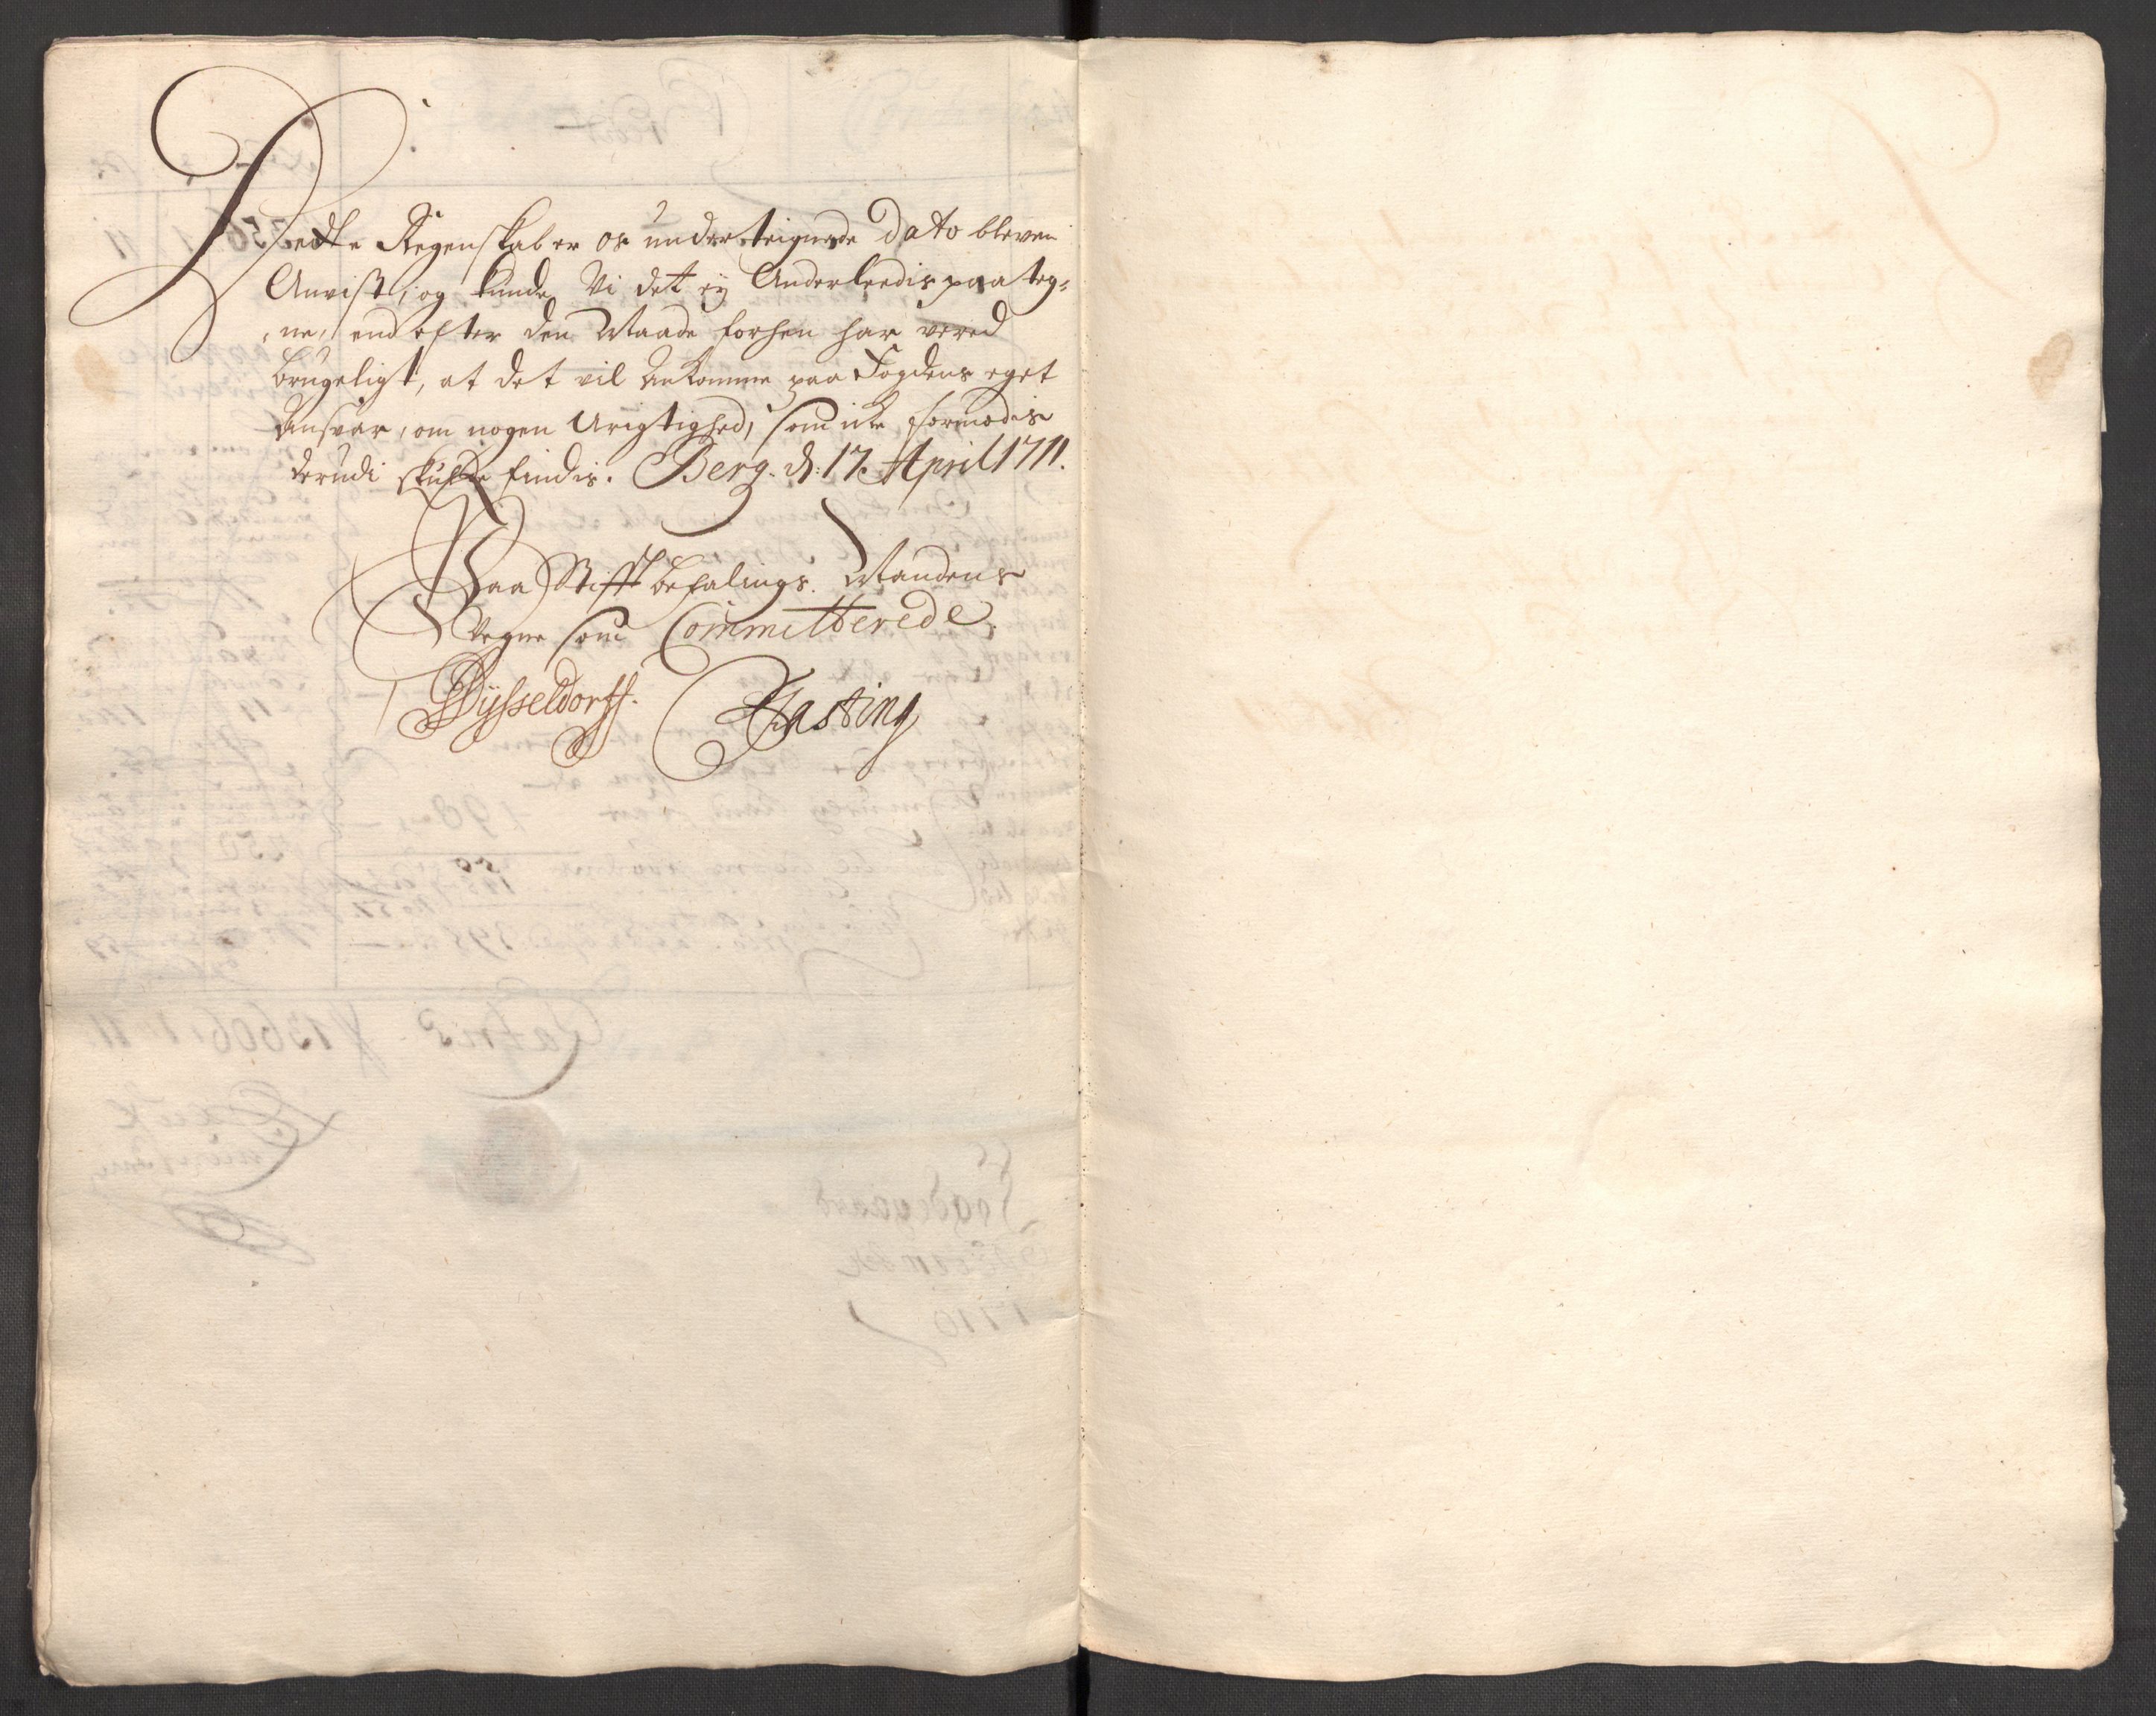 Dette Regenskab er os underteignede Dato bleven
Anvist, og kunde Vi det ey Anderleedis paateg-
ne, end efter den Maade forhen har vered
brugeligt, at det vil Ankomme paa Fogdens eget
Ansvar, om nogen Urigtighed, som icke formodis
derudi skulde findis. Berg. d: 17. April 1711.
Paa Stifft befalings Mandens
Vegne som Committerede
Dysseldorff. Hasting